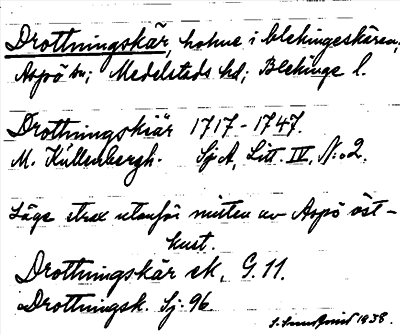 Drottningskär, holme i blekingeskären,
Aspö sn; Medelstads hd; Blekinge l.
Drottningskiär 1717-1747.
M. Küllenbergh. Sj A, Litt. IV, N:o 2.
Läge strax utanför mitten av Aspö öst-
kust.
Drottningskär ek. G. 11.
Drottningsk. Sj. 96.
1938.